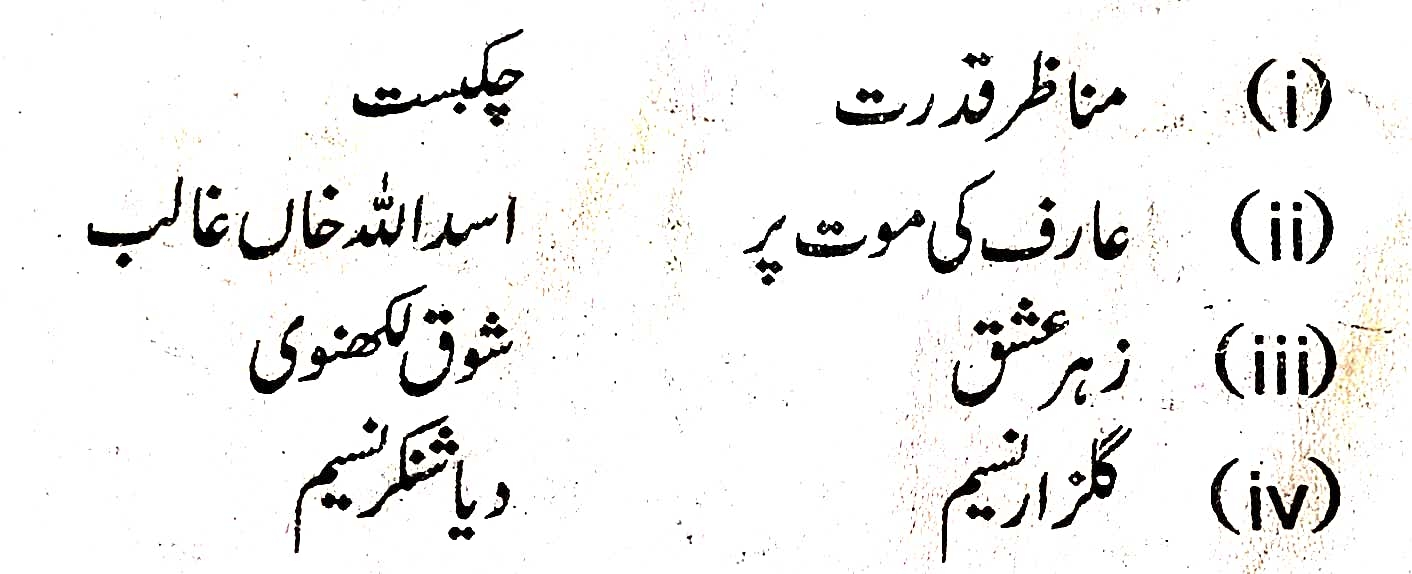 (i) مناظر قدرت چکبست
(ii) عارف کی موت پر اسد اللہ خاں غالب
(iii) زہر عشق شوق لکھنوی
(iv) گلزار نسیم دیا شنکر نسیم